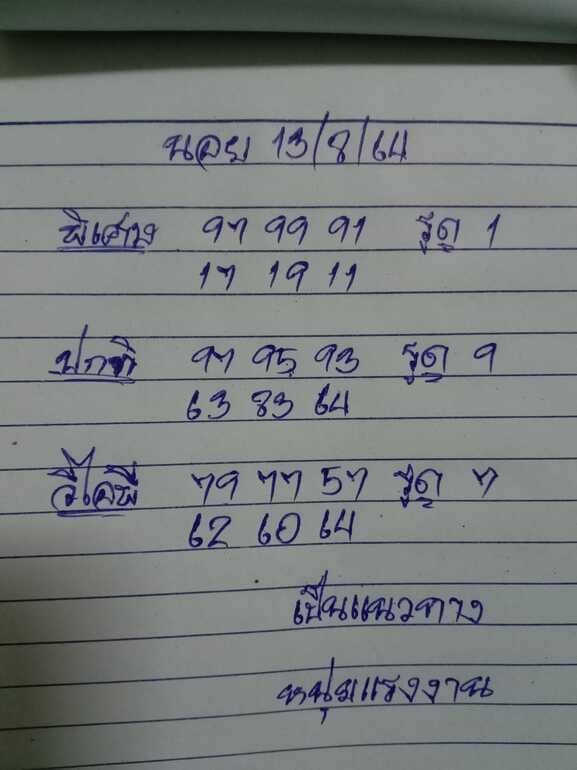 นอย 13/8/64
พิเศษ 97 99 91 รูด 1
17 19 11
ปกติ 97 95 93 รูด 9
63 83 64
วีไอพี 79 77 57 รูด 7
62 60 64
เป็นแนวทาง
หนุ่มแรงงาน